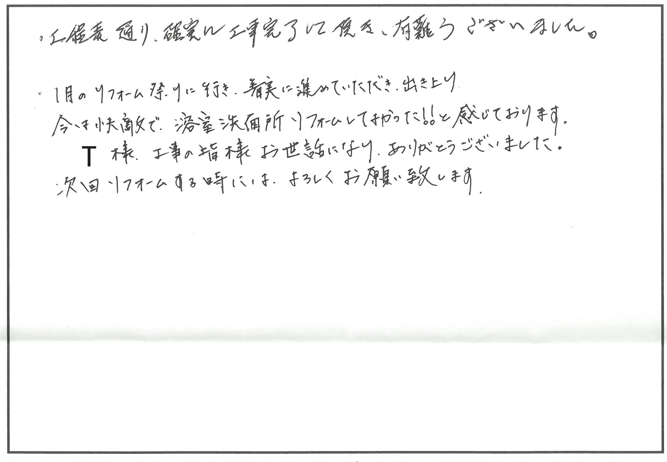 ・工程表通り、確実に工事完了して頂き、有難うございました。
・1月のリフォーム祭りに行き、着実に進めていただき、出き上り
今は快適で、浴室洗面所リフォームしてよかった!!と感じております。
T 様、工事の皆様お世話になり、ありがとうございました。
次回リフォームする時には、よろしくお願い致します。